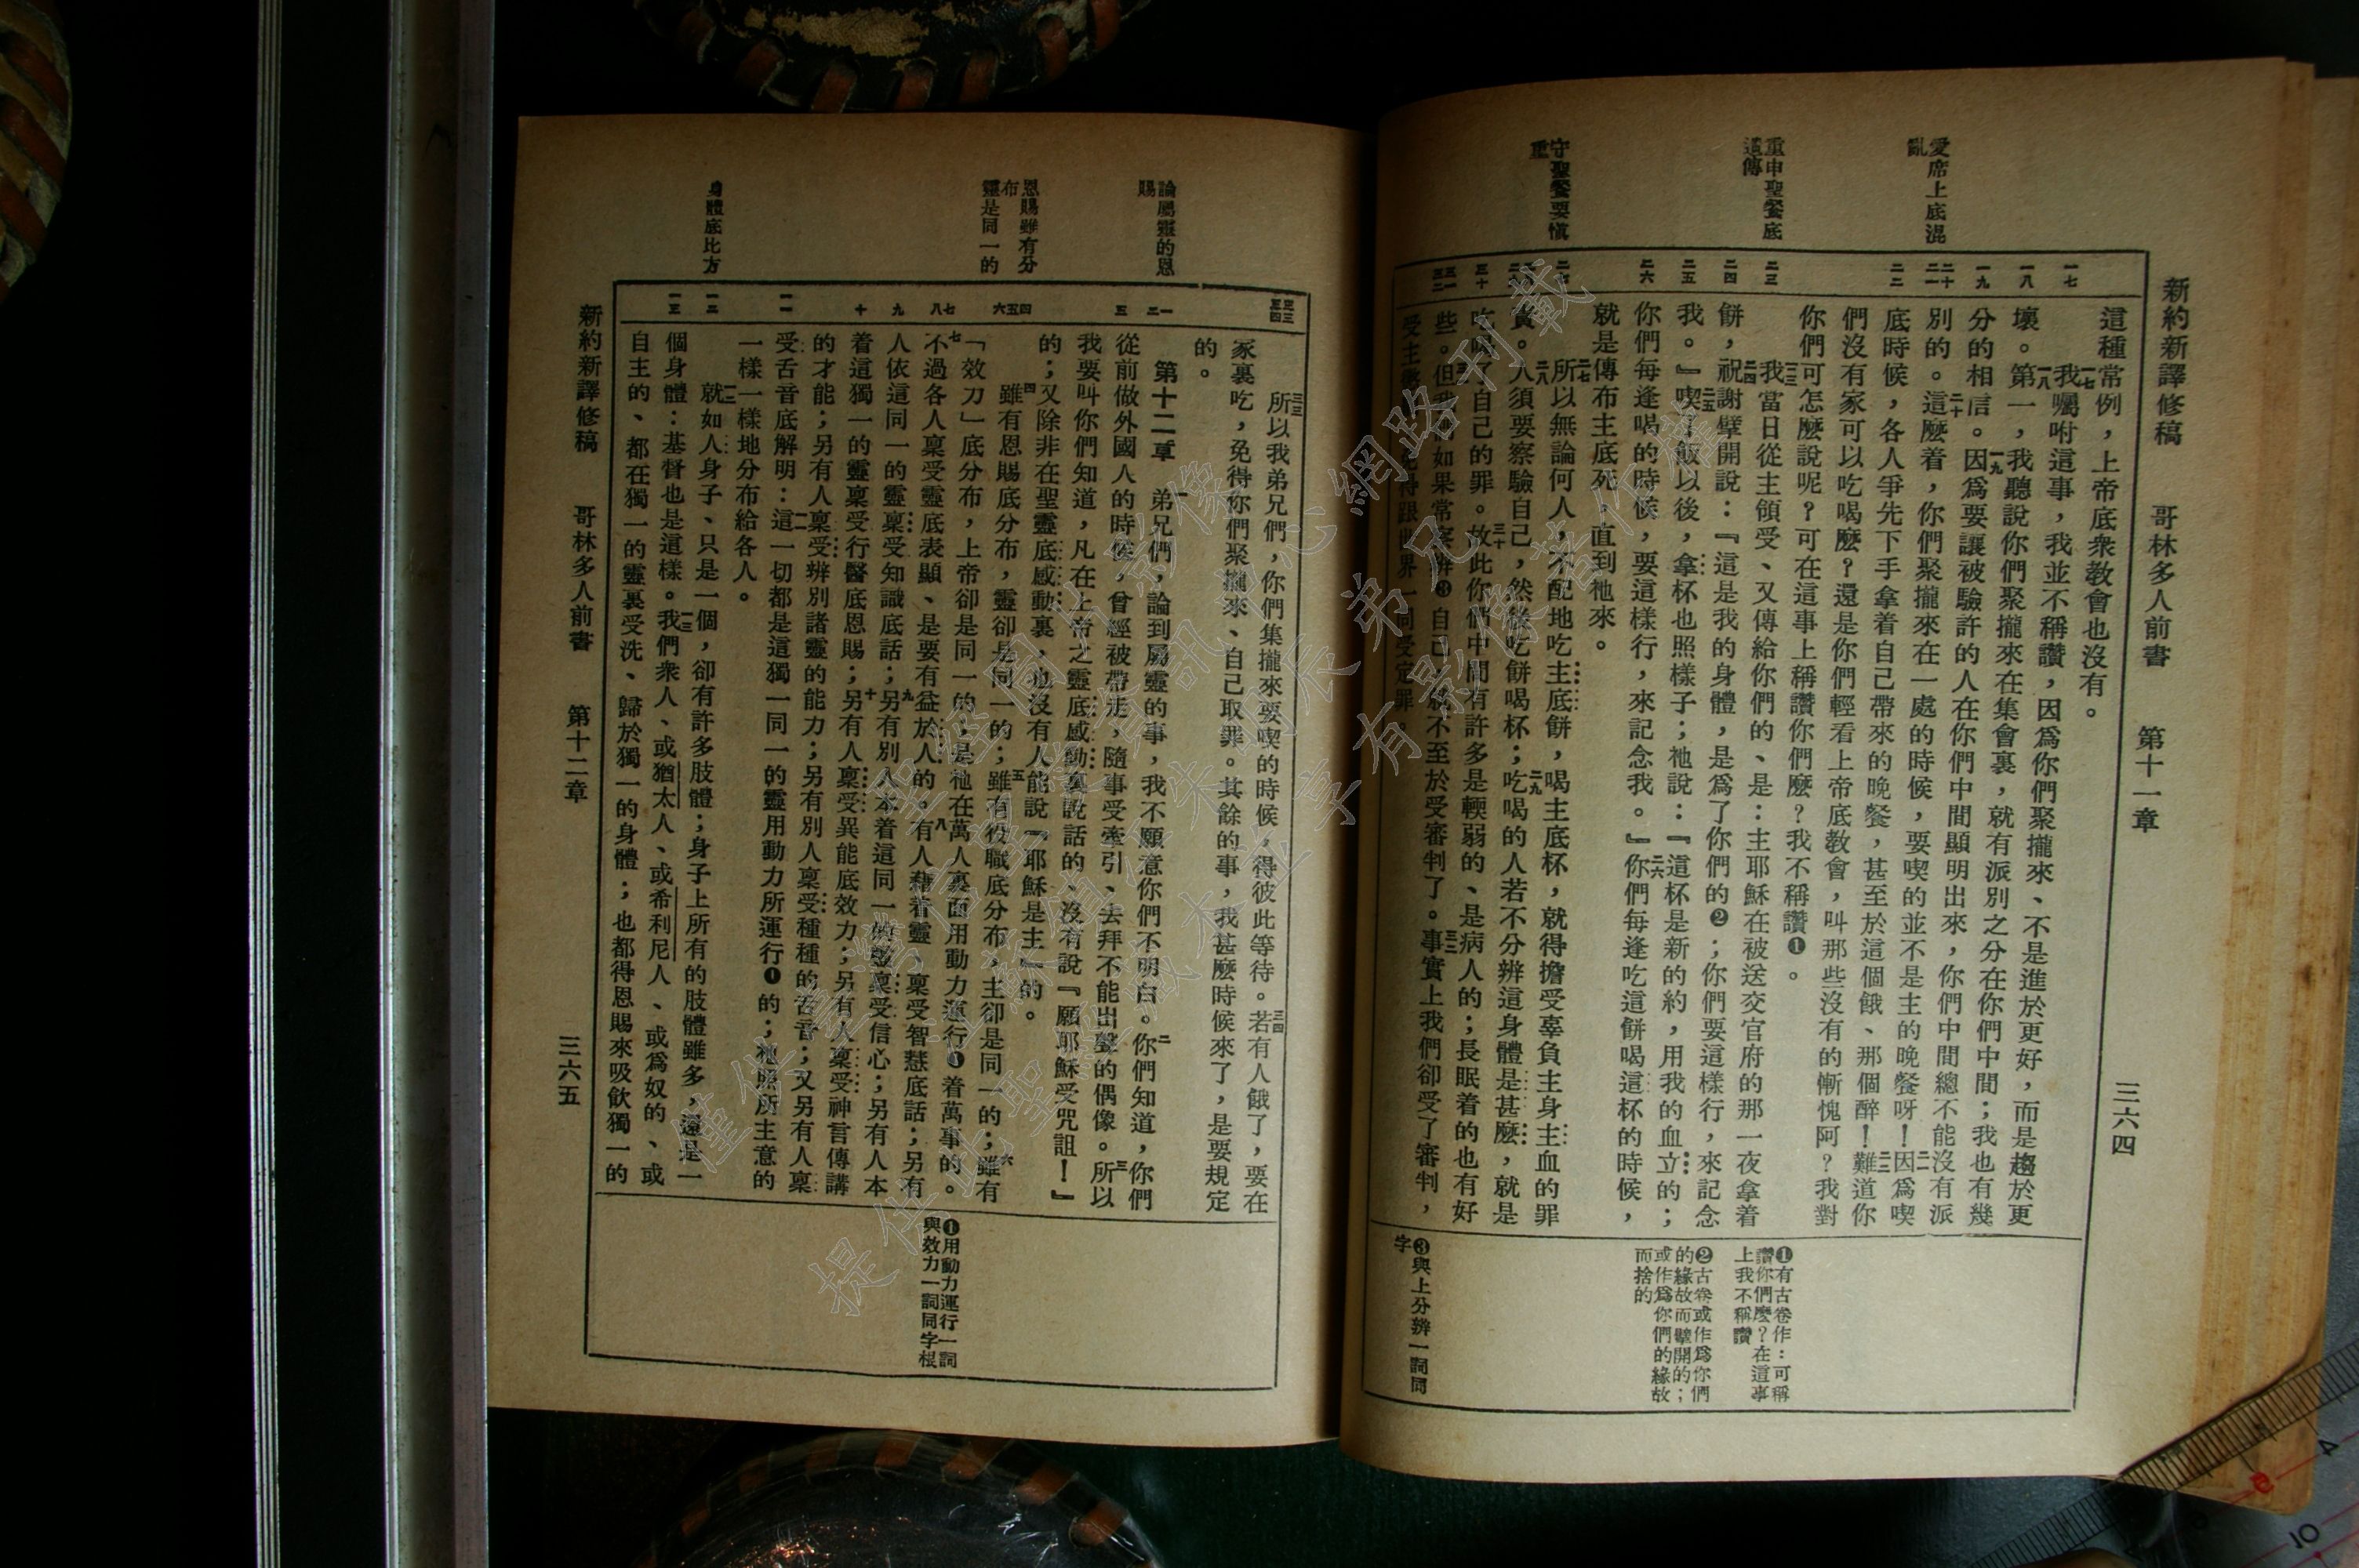 新約新譯修稿　哥林多人前書　第十一章　三六四
愛席上底混亂
重申聖餐底遺傳
守聖餐要慎重
這種常例，上帝底衆教會也沒有。
一七我囑咐這事，我並不稱讚，因爲你們聚攏來、不是進於更好，而是趨於更
壞。一八第一，我聽說你們聚攏來在集會裏，就有派別之分在你們中間；我也有幾
分的相信。一九因爲要讓被驗許的人在你們中間顯明出來，你們中間總不能沒有派
別的。二十這麼着，你們聚攏來在一處的時候，要喫的並不是主的晚餐呀！二一因爲喫
底時候，各人爭先下手拿着自己帶來的晚餐，甚至於這個餓、那個醉！二二難道你
們沒有家可以吃喝麼？還是你們輕看上帝底教會，叫那些沒有的慚愧阿？我對
你們可怎麼說呢？可在這事上稱讚你們麼？我不稱讚❶。
二三我當日從主領受、又傳給你們的、是：主耶穌在被送交官府的那一夜拿着
餅，二四祝謝擘開說：『這是我的身體，是爲了你們的❷；你們要這樣行，來記念
我。』二五喫了飯以後，拿杯也照樣子；祂說：『這杯是新的約，用我的血立的；
你們每逢喝的時候，要這樣行，來記念我。』二六你們每逢吃這餅喝這杯的時候，
就是傳布主底死，直到祂來。
二七所以無論何人，不配地吃主底餅，喝主底杯，就得擔受辜負主身主血的罪
責。二八人須要察驗自己，然後吃餅喝杯；二九吃喝的人若不分辨這身體是甚麼，就是
吃喝了自己的罪。三十故此你們中間有許多是輭弱的、是病人的；長眠着的也有好
些。三一但我們如果常察辨❸自己，就不至於受審判了。三二事實上我們卻受了審判，
受主懲
得跟世界一同受定罪。
❶有古卷作：可稱讚你們麼？在這事上我不稱讚
❷古卷或作爲你們的緣故而擘開的；或作爲你們的緣故而捨的
❸與上分辨一詞同字
論屬靈的恩賜
恩賜雖有分布靈是同一的
身體底比方
三三所以我弟兄們，你們集攏來要喫的時候，得彼此等待。三四若有人餓了，要在
家裏吃，免得你們聚攏來、自己取罪。其餘的事，我甚麼時候來了，是要規定
的。
第十二章　一弟兄們，論到屬靈的事，我不願意你們不明白。二你們知道，你們
從前做外國人的時候，曾經被帶走，隨事受牽引、去拜不能出聲的偶像。三所以
我要叫你們知道，凡在上帝之靈底感動裏說話的、沒有說『願耶穌受咒詛！』
的；又除非在聖靈底感動裏，也沒有人能說『耶穌是主』的。
四雖有恩賜底分布，靈卻是同一的；五雖有役職底分布，主卻是同一的；六雖有
「效力」底分布，上帝卻是同一的；是祂在萬人裏面用動力運行❶着萬事的。
七不過各人稟受靈底表顯、是要有益於人的。八有人藉着靈、稟受智慧底話；另有
人依這同一的靈稟受知識底話；九另有別人本着這同一的靈稟受信心；另有人本
着這獨一的靈稟受行醫底恩賜；十另有人稟受異能底效力；另有人稟受神言傳講
的才能；另有人稟受辨別諸靈的能力；另有別人稟受種種的舌音；又另有人稟
受舌音底解明：一一這一切都是這獨一同一的靈用動力所運行❶的；祂照所主意的
一樣一樣地分布給各人。
一二就如人身子、只是一個，卻有許多肢體；身子上所有的肢體雖多，還是一
個身體：基督也是這樣。一三我們衆人、或猶太人、或希利尼人、或爲奴的、或
自主的、都在獨一的靈裏受洗、歸於獨一的身體；也都得恩賜來吸飲獨一的
❶用動力運行一詞與效力一詞同字根
新約新譯修稿　哥林多人前書　第十二章　三六五